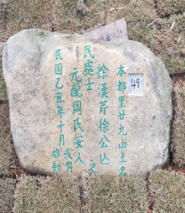 本都里廿九山土名
徐漢芹徐公么
民處士
元配周氏安人
民国乙丑年十月
49